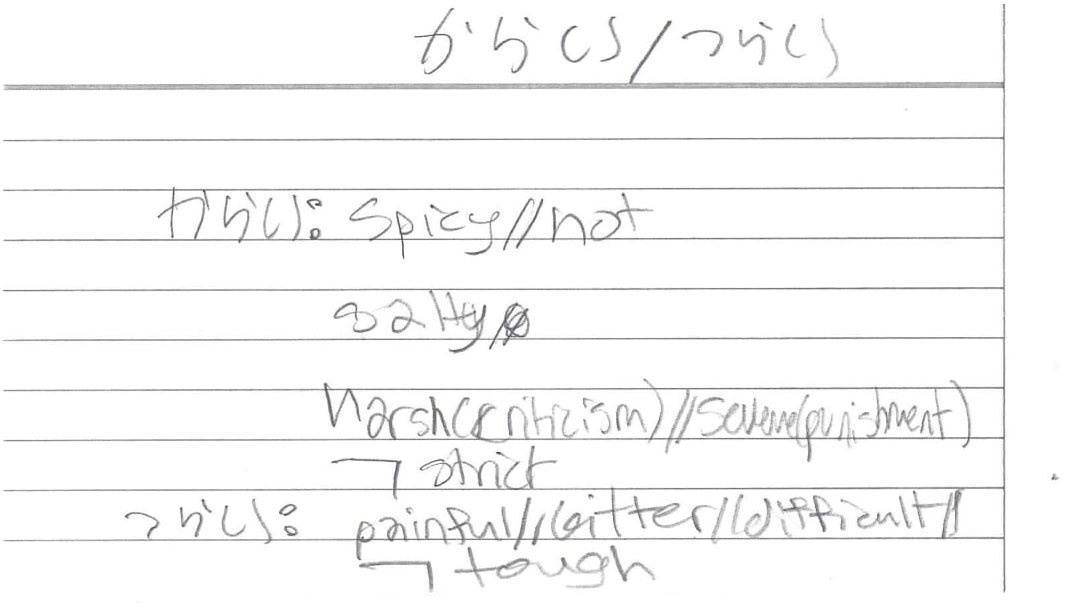 からい/つらい
からい: spicy//hot
salty
harsh(criticism)//severe(punishment)
→ strict
つらい: painful//bitter//difficult//
→ tough